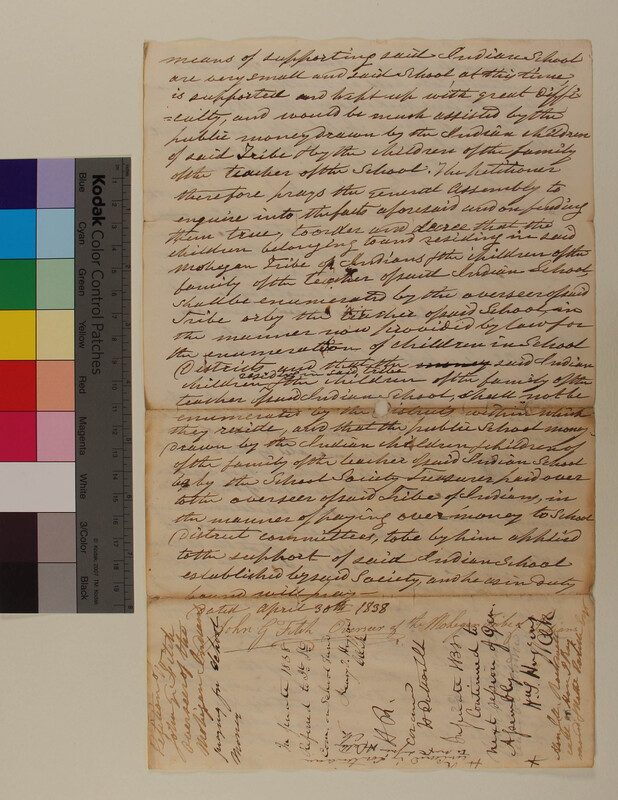 means of supporting said Indian School
are very small and said School at this time
is supported and kept up with great diffi
=culty, and would be much assisted by the
public money drawn by the Indian children
of said Tribe & by the children of the family
of the teacher of the School. The petitioner
therefore prays the General Assembly to
enquire into the facts aforesaid and on finding
them true, to order and decree that the
children belonging to and residing in said
Mohegan Tribe of Indians & the children of the
family of the teacher of said Indian School
shall be enumerated by the overseer of said
Tribe or by the teacher of said School, in
the manner now provided by law for
the enumeration of children in School
Districts, and that the money said Indian
residing in
children & the children of the family of the
teacher of said Indian School, shall not be
enumerated by the districts within which
they reside, and that the public School money
drawn by the Indian children & children of
of the family of the teacher of said Indian School
be by the School Society Treasurer paid over
to the overseer of said Tribe of Indians, in
the manner of paying over money to School
District committees, to be by him applied
to the support of said Indian School
established by said Society, and he as in duty
bound will pray—
Dated April 30th 1838
John G Fitch Overseer of the Mohegan Tribe
Petition of
John G Fitch
Overseer of the
Mohegan Indians
praying for School
Money
In Senate 1838
Referred to
Com. on School Fund
H. R.
In Senate 1838
Continued to
next session of Gen.
Assembly
Clerk
Kodak Color Control Patches
Blue
Cyan
Green
Yellow
Red
Magenta
White
3/Color
Black
© Kodak, 2007 TM: Kodak